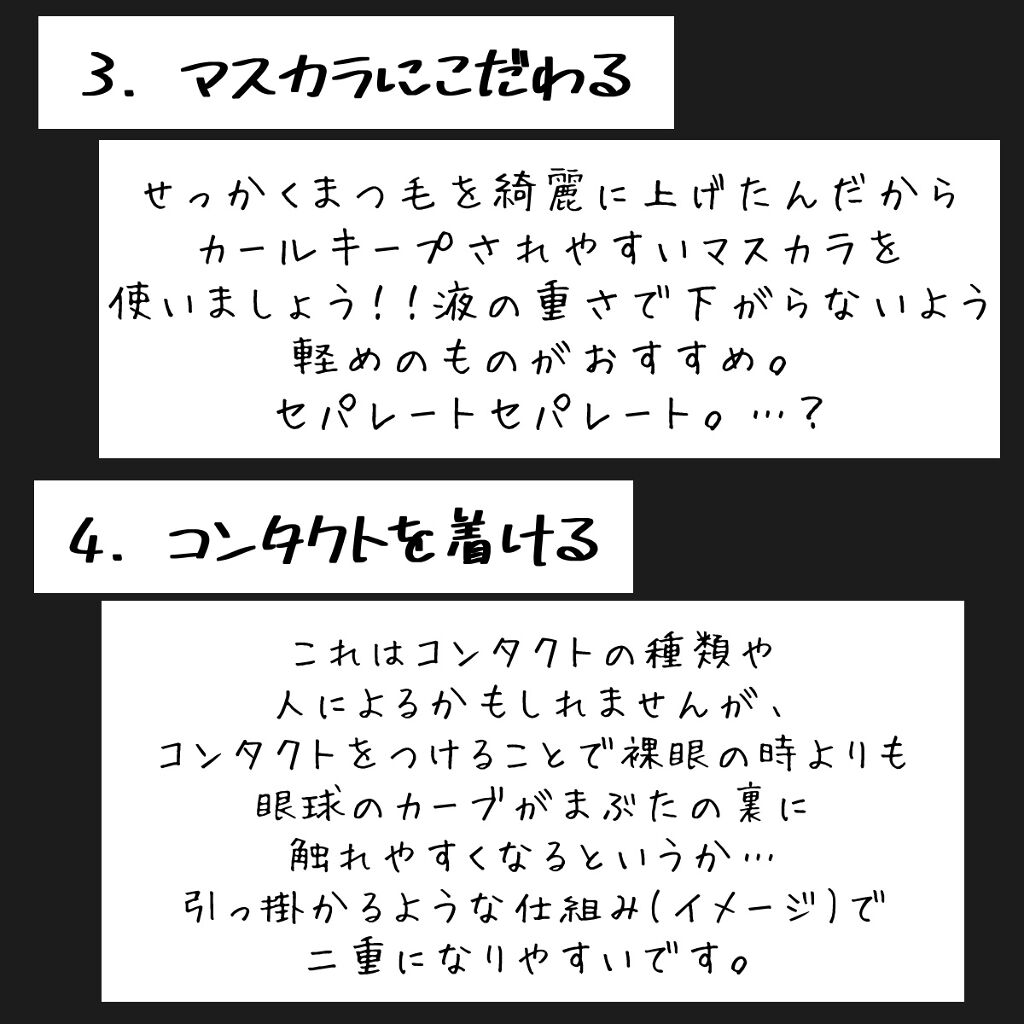 3. マスカラにこだわる
せっかくまつ毛を綺麗に上げたんだから
カールキープされやすいマスカラを
使いましょう!!液の重さで下がらないよう
軽めのものがおすすめ。
セパレートセパレート。…?
4. コンタクトを着ける
これはコンタクトの種類や
人によるかもしれませんが、
コンタクトをつけることで裸眼の時よりも
眼球のカーブがまぶたの裏に
触れやすくなるというか…
引っ掛かるような仕組み(イメージ)で
二重になりやすいです。